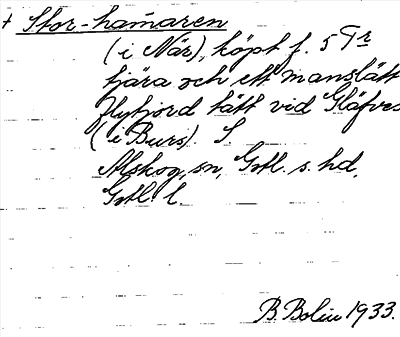 + Stor-hamaren
(i När), köpt f. 5 Tr
tjära och ett manslätt
flytjord tätt vid Gläfves
(i Burs). S.
Alskog sn, Gotl. s. hd,
Gotl. l.
B. Bolin 1933.